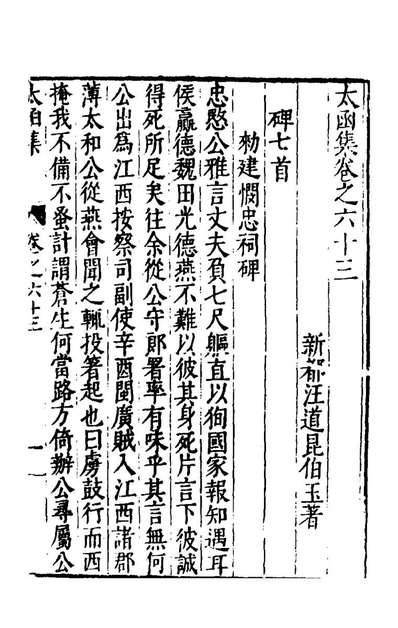 太函集卷之六十三
新都汪道昆伯玉著
碑七首
勑建愍忠祠碑
忠愍公雅言丈夫負七尺軀直以徇國家報知遇耳
侯嬴德魏田光德燕不難以彼其身死片言下彼誠
得死所足矣往余從公守郎署率有味乎其言無何
公出爲江西按察司副使辛酉閩廣賊入江西諸郡
薄太和公從燕會聞之輒投箸起也曰虜鼓行而西
掩我不備不蚤計謂蒼生何當路方倚辦公尋屬公
太函集
卷之六十三
一